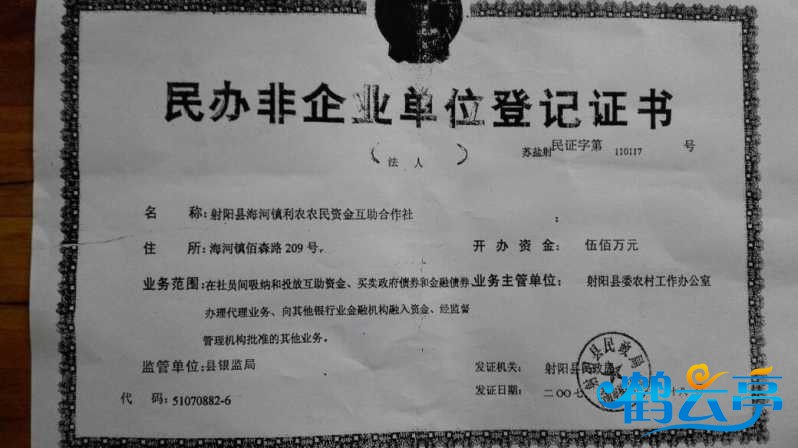 民办非企业单位登记证书
（法人）
苏盐射民证字第 110117 号
名 称：射阳县海河镇利农农民资金互助合作社
住 所：海河镇佰森路 209 号。
开 办 资 金： 伍佰万元
业务范围：在社员间吸纳和投放互助资金、买卖政府债券和金融债券、
办理代理业务、向其他银行业金融机构融入资金、经监督
管理机构批准的其他业务。
业务主管单位： 射阳县委农村工作办公室
监管单位：县银监局
发证机关： 射阳县民政局
发证日期：二〇〇七
十八
代 码：51070882-6
鹤云亭